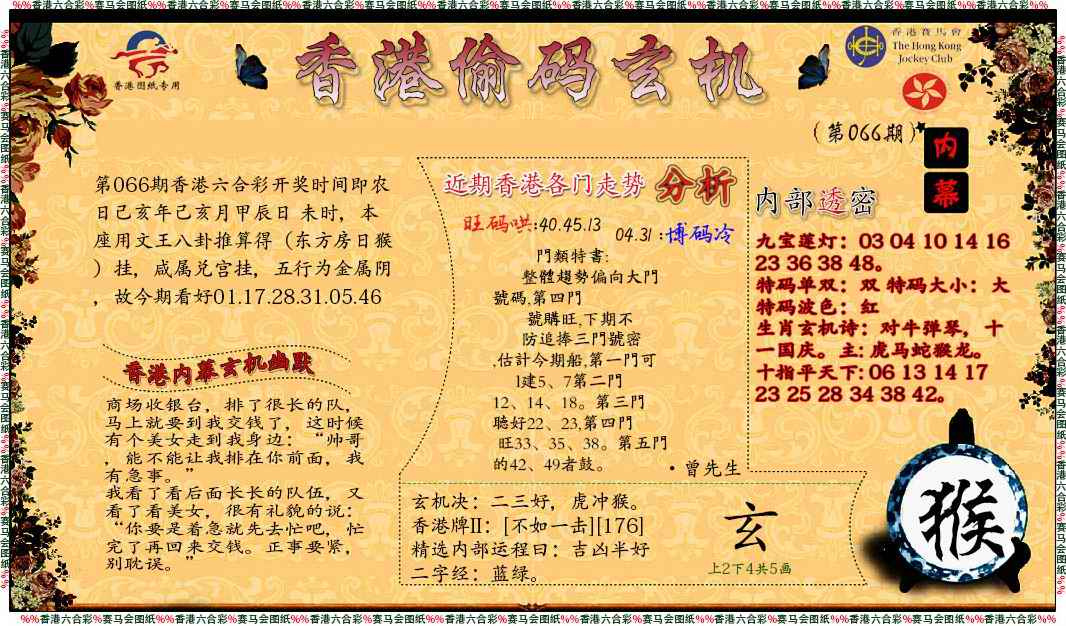 %%香港六合彩%赛马会图纸%%香港六合彩%赛马会图纸%%香港六合彩%赛马会图纸%%香港六合彩%赛马会图纸%%香港六合彩%赛马会图纸%%香港六合彩%赛马会图纸%%香港六合彩%%
香港图纸专用
香港偷码玄机
香港賽馬會
The Hong Kong
Jockey Club
(第066期)
内
幕
第066期香港六合彩开奖时间即农
日己亥年己亥月甲辰日 未时，本
座用文王八卦推算得（东方房日猴
）挂，咸属兑宫挂，五行为金属阴
，故今期看好01.17.28.31.05.46
香港内幕玄机幽默
商场收银台，排了很长的队，
马上就要到我交钱了，这时候
有个美女走到我身边：“帅哥
，能不能让我排在你前面，我
有急事。”
我看了看后面长长的队伍，又
看了看美女，很有礼貌的说：
“你要是着急就先去忙吧，忙
完了再回来交钱。正事要紧，
别耽误。”
近期香港各门走势 分析
旺码哄:40.45.13
04.31:博码冷
門類特書:
整體趨勢偏向大門
號碼,第四門
號購旺,下期不
防追捧三門號密
,估計今期船,第一門可
1建5、7第二門
12、14、18。第三門
聽好22、23,第四門
旺33、35、38。第五門
的42、49者鼓。
·曾先生
玄机决：二三好，虎冲猴。
香港牌II：[不如一击][176]
精选内部运程曰：吉凶半好
二字经：蓝绿。
玄
上2下4共5画
内部透密
九宝莲灯：03 04 10 14 16
23 36 38 48。
特码单双：双 特码大小：大
特码波色：红
生肖玄机诗：对牛弹琴，十
一国庆。主: 虎马蛇猴龙。
十指平天下: 06 13 14 17
23 25 28 34 38 42。
猴
%%香港六合彩%赛马会图纸%%香港六合彩%赛马会图纸%%香港六合彩%赛马会图纸%%香港六合彩%赛马会图纸%%香港六合彩%赛马会图纸%%香港六合彩%赛马会图纸%%香港六合彩%%